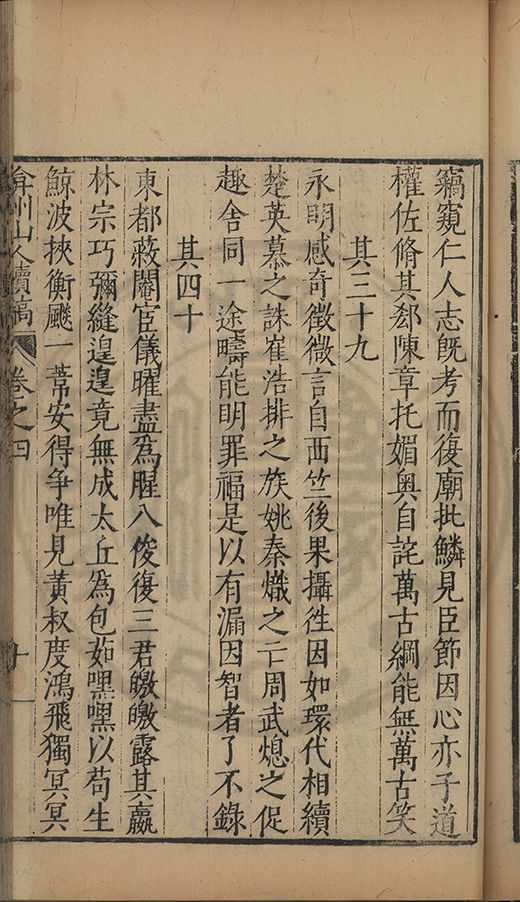 竊窺仁人志既考而復廟批鱗見臣節因心亦子道
權佐脩其郄陳章托媚奧自詫萬古綱能無萬古笑
其三十九
永明感奇徵微言自西竺後果攝徃因如環代相續
楚英慕之誅崔浩排之族姚秦熾之亡周武熄之促
趣舍同一途疇能明罪福是以有漏因智者了不錄
其四十
東都蔽閹宦儀曜盡為腥八俊復三君皦皦露其嬴
林宗巧彌縫遑遑竟無成太丘為包茹嘿嘿以苟生
鯨波挾衡飈一葦安得爭唯見黃叔度鴻飛獨冥冥
弇州山人續稿
卷之四
十